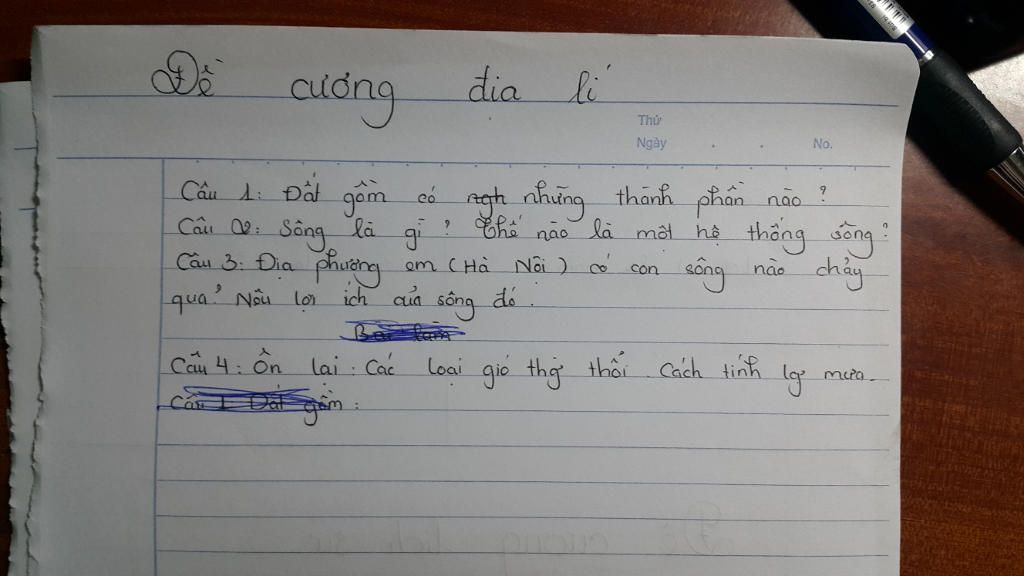 Đề cương địa lí
Thứ
Ngày . . No.
Câu 1: Đất gồm có ngh những thành phần nào?
Câu 2: Sông là gì? Thế nào là một hệ thống sông?
Câu 3: Địa phương em (Hà Nội) có con sông nào chảy
qua? Nêu lợi ích của sông đó.
Bài làm
Câu 4: Ôn lại: Các loại gió thg thổi. Cách tính lg mưa.
Câu 1 Đất gồm: